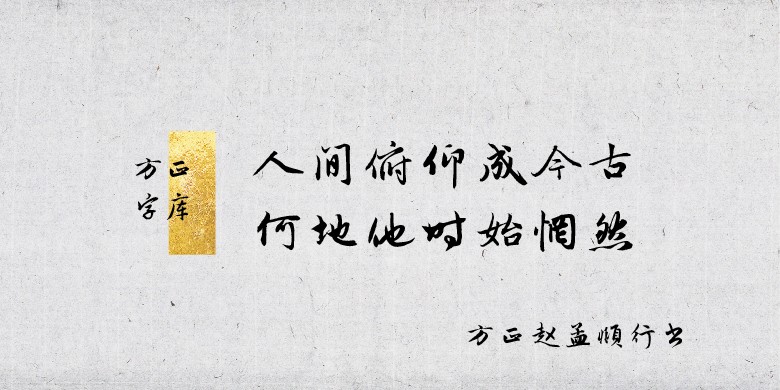 方正
字库
人间俯仰成今古
何地他时始惘然
方正赵孟頫行书